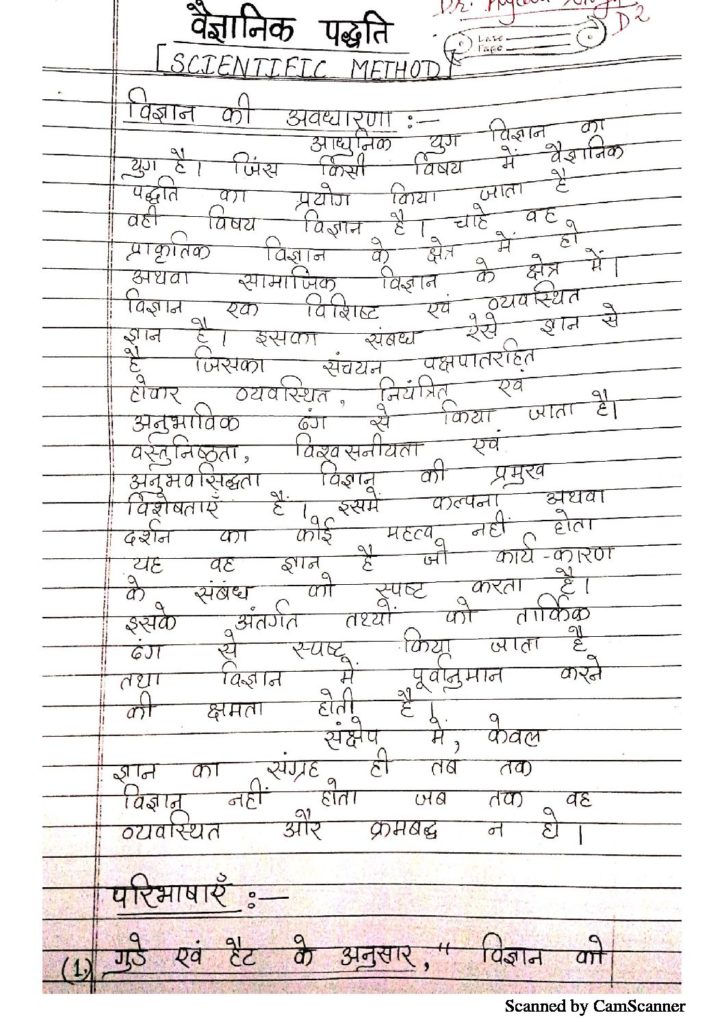 वैज्ञानिक पद्धति
[SCIENTIFIC METHOD]
Date
Page
D2
विज्ञान की अवधारणा :—
आधुनिक युग विज्ञान का
युग है। जिस किसी विषय में वैज्ञानिक
पद्धति का प्रयोग किया जाता है
वही विषय विज्ञान है। चाहे वह
प्राकृतिक विज्ञान के क्षेत्र में हो
अथवा सामाजिक विज्ञान के क्षेत्र में।
विज्ञान एक विशिष्ट एवं व्यवस्थित
ज्ञान है। इसका संबंध ऐसे ज्ञान से
है जिसका संचयन पक्षपातरहित
होकर व्यवस्थित, नियंत्रित एवं
अनुभाविक ढंग से किया जाता है।
वस्तुनिष्ठता, विश्वसनीयता एवं
अनुभवसिद्धता विज्ञान की प्रमुख
विशेषताएँ हैं। इसमें कल्पना अथवा
दर्शन का कोई महत्व नहीं होता
यह वह ज्ञान है जो कार्य-कारण
के संबंध को स्पष्ट करता है।
इसके अंतर्गत तथ्यों को तार्किक
ढंग से स्पष्ट किया जाता है
तथा विज्ञान में पूर्वानुमान करने
की क्षमता होती है।
संक्षेप में, केवल
ज्ञान का संग्रह ही तब तक
विज्ञान नहीं होता जब तक वह
व्यवस्थित और क्रमबद्ध न हो।
परिभाषाएँ :—
(1.) गुडे एवं हैट के अनुसार, " विज्ञान को
Scanned by CamScanner